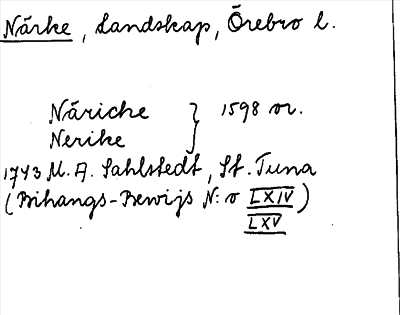 Närke, Landskap, Örebro l.
Näriche } 1598 or.
Nerike
1743 M. A. Sahlstedt, St. Tuna
(Bihangs-Bewijs N:o LXIV)
LXV